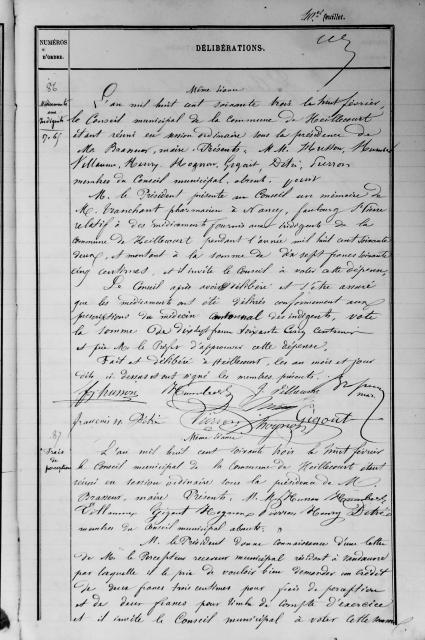 feuillet.
NUMÉROS
D'ORDRE.
DÉLIBÉRATIONS.
86
Médicaments
aux
Indigents
17.65
Même séance
L'an mil huit cent soixante trois le huit février,
le Conseil municipal de la Commune de Heillecourt
étant réuni en session ordinaire sous la présidence de
Mr Brasseur, maire. Présents. M.M. Husson, Humbert
Villaume, Henry Hognon, Gigout, Détré, Pierron
membres du Conseil municipal, absent.
M. le Président présente au Conseil un mémoire de
M. Tranchant pharmacien à Nancy, faubourg St Pierre
relatif à des médicaments fournis aux indigents de la
Commune de Heillecourt pendant l'année mil huit cent soixante
deux, et montant à la somme de dix sept francs soixante
cinq centimes, et il invite le Conseil à voter cette dépense.
Le Conseil après avoir délibéré et s'être assuré
que les médicaments ont été délivrés conformément aux
prescriptions du médecin cantonal des indigents, vote
la somme de dix sept francs soixante cinq centimes
et prie Mr le Préfet d'approuver cette dépense.
Fait et délibéré à Heillecourt, les an mois et jour
dits et dessus et ont signé les membres présents.
Husson
Humbert
J. Villaume
mre.
Détré
Pierron
Hognon
Gigout
87
Frais
de
perception
Même séance
L'an mil huit cent soixante trois le huit février
le Conseil municipal de la Commune de Heillecourt étant
réuni en session ordinaire sous la présidence de M.
Brasseur, maire Présents. M.M. Husson Humbert,
Villaume, Gigout Hognon, Pierron Henry Détré
membres du Conseil municipal absents.
M. le Président donne connaissance d'une lettre
de Mr le Percepteur receveur municipal résident à
par laquelle il le prie de vouloir bien demander un crédit
de deux francs trois centimes pour frais de perception
et de deux francs pour timbre de compte d'exercice
et il invite le Conseil municipal à voter cette somme